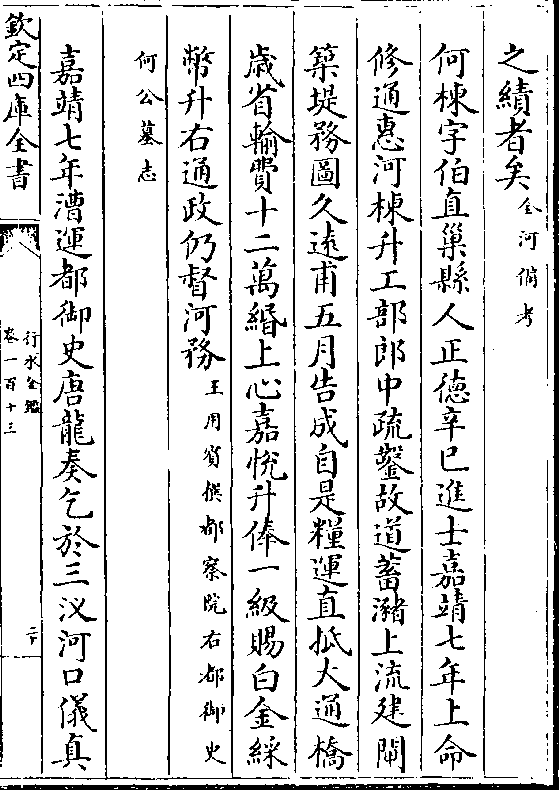 之績者矣全河備考
何棟字伯直巢縣人正德辛巳進士嘉靖七年上命
修通惠河棟升工部郎中疏鑿故道蓄瀦上流建閘
築堤務圖久遠甫五月告成自是糧運直抵大通橋
歲省輸費十二萬緡上心嘉悅升俸一級賜白金綵
幣升右通政仍督河務王用賓撰都察院右都御史
何公墓志
嘉靖七年漕運都御史唐龍奏乞於三汊河口儀真
欽定四庫全書
行水金鑑
卷一百十三
二十